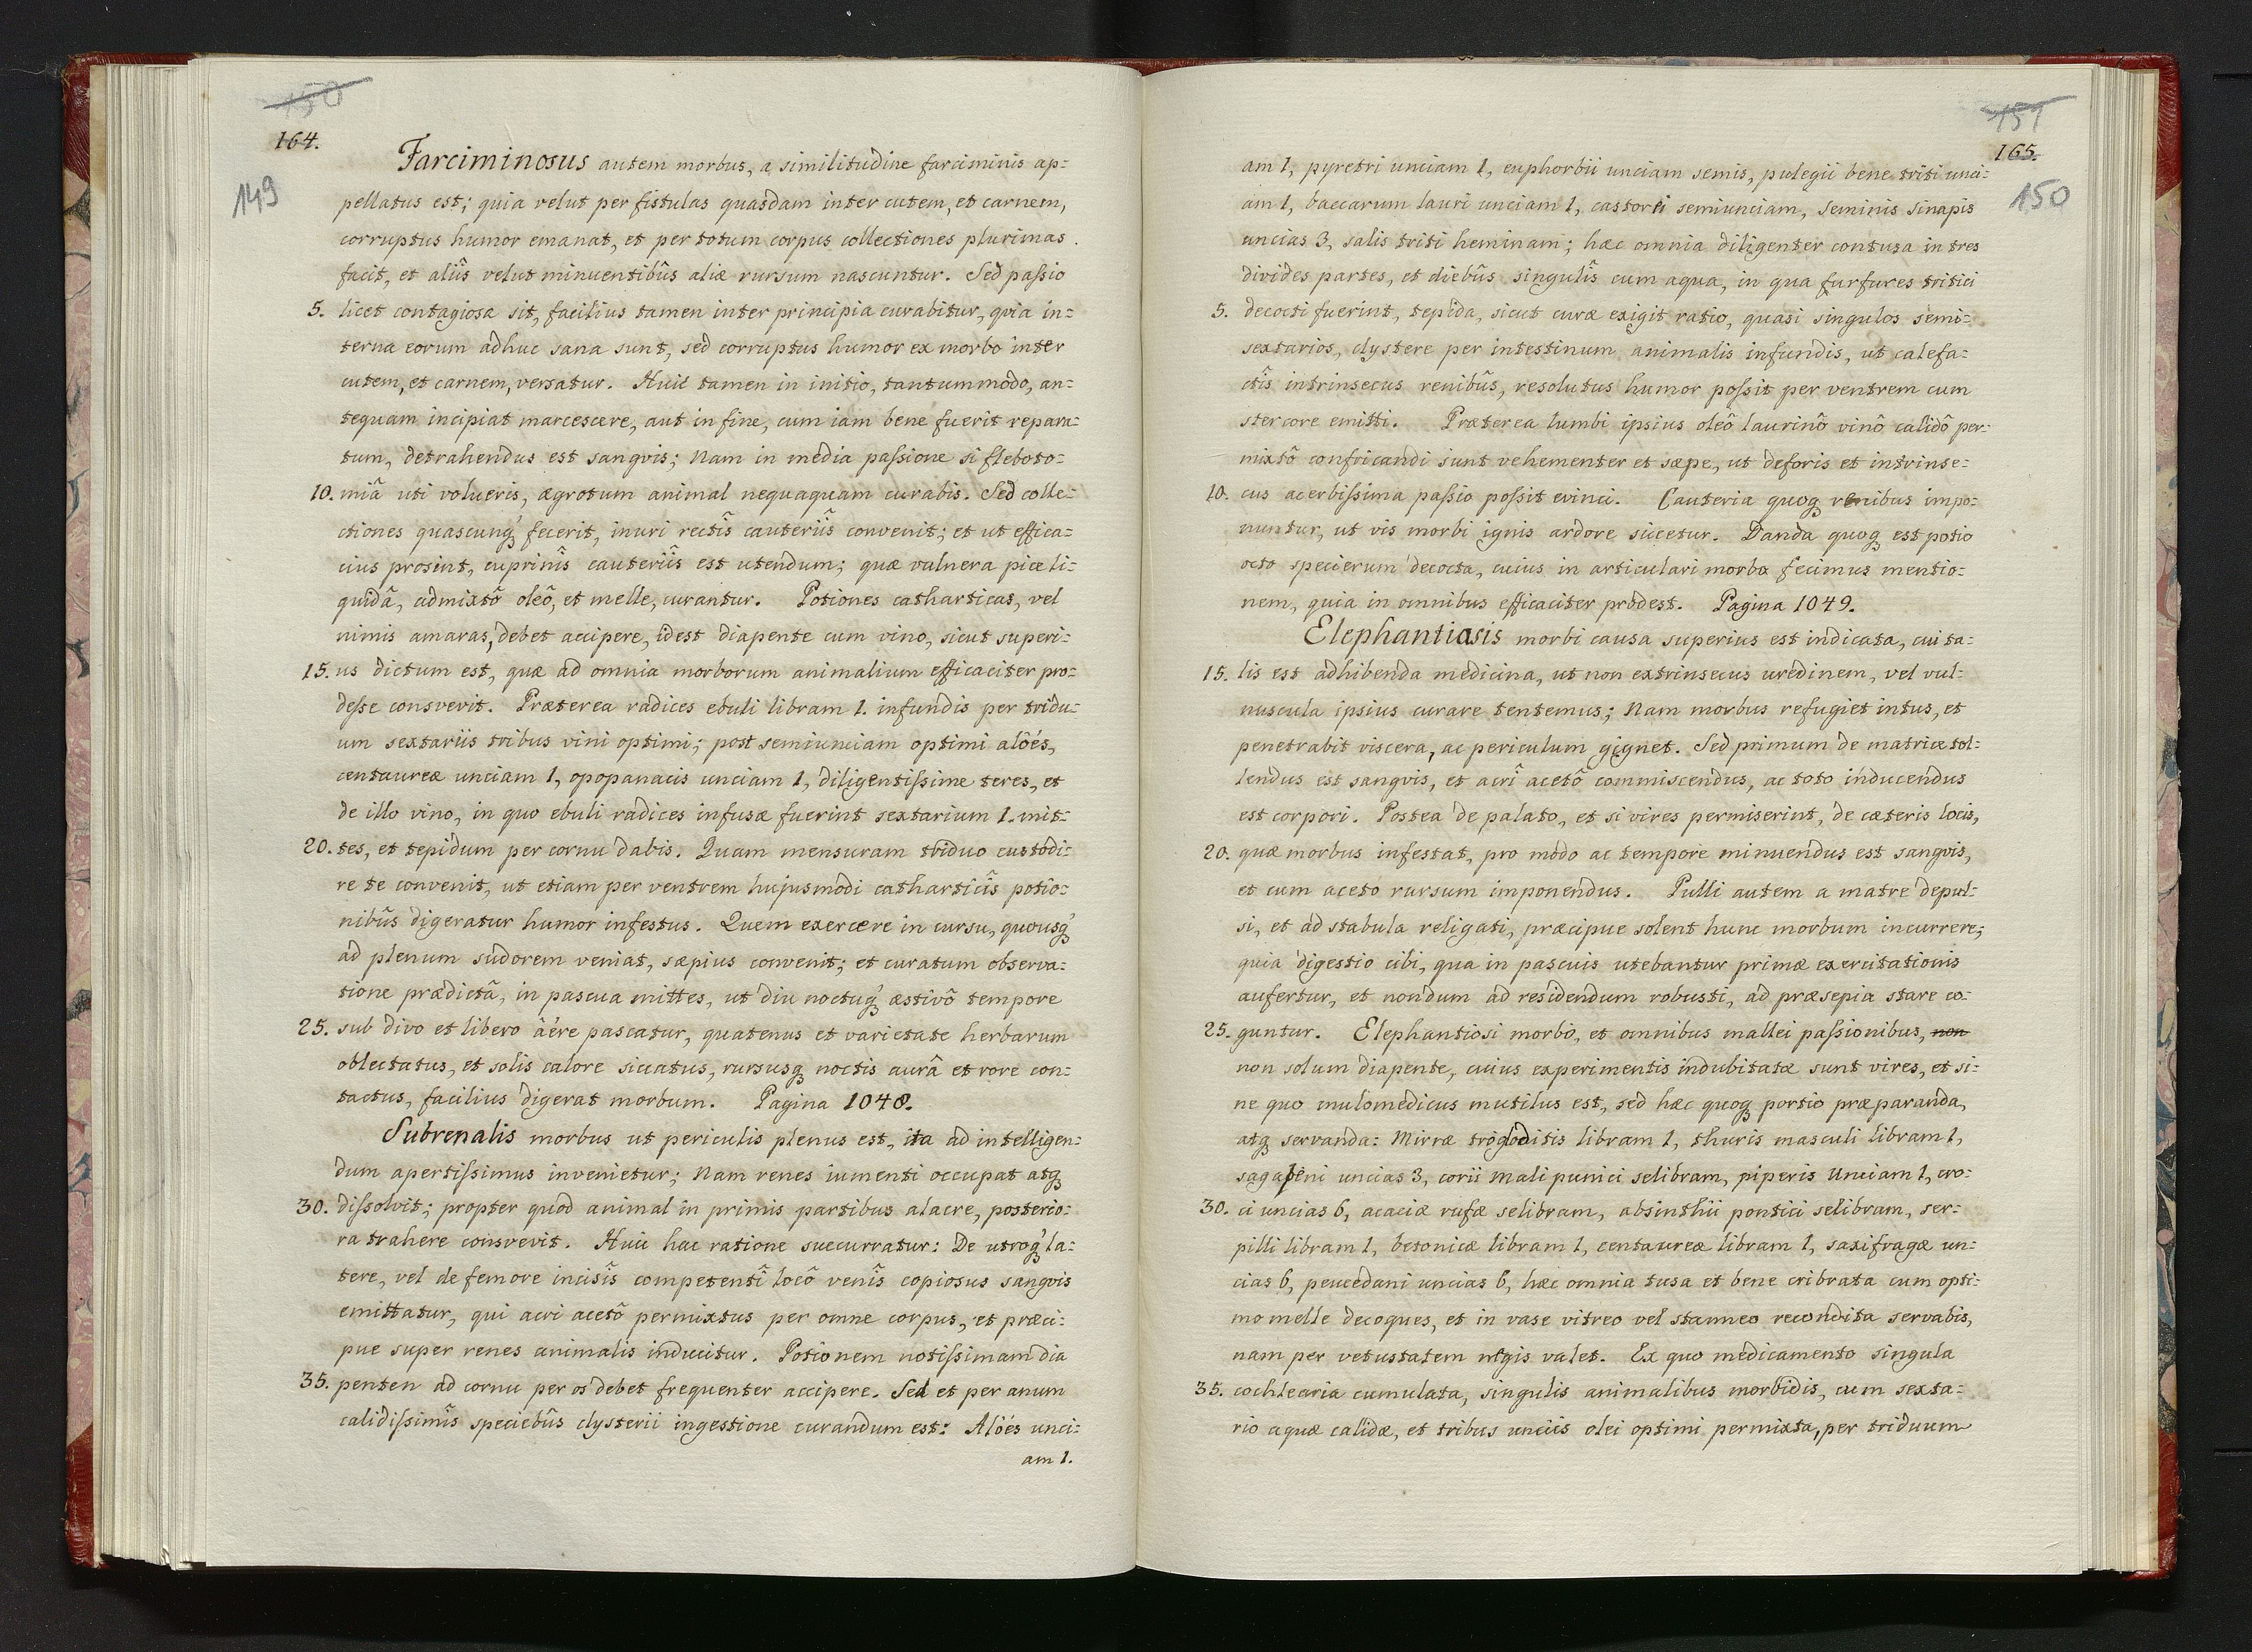 150
164.
149
Farciminosus autem morbus, a similitudine farciminis ap=
pellatus est; quia velut per fistulas quasdam inter cutem, et carnem,
corruptus humor emanat, et per totum corpus collectiones plurimas
facit, et aliîs velut minuentibûs aliæ rursum nascuntur. Sed paſsio
5. licet contagiosa sit, facilius tamen inter principia curabitur, quia in=
terna eorum adhuc sana sunt, sed corruptus humor ex morbo inter
cutem, et carnem, versatur. Huic tamen in initio, tantummodo, an=
tequam incipiat marcescere, aut in fine, cum iam bene fuerit repara=
tum, detrahendus est sangvis; Nam in media paſsione si fleboto=
10. miâ uti volueris, ægrotum animal nequaquam curabis. Sed colle=
ctiones quascunq́ fecerit, inuri rectîs cauteriîs convenit; et ut effica=
cius prosint, cuprinîs cauteriîs est utendum; quæ vulnera pice li=
quidâ, admixtô oleô, et melle, curantur. Potiones catharticas, vel
nimis amaras, debet accipere, idest diapente cum vino, sicut superi=
15. us dictum est, quæ ad omnia morborum animalium efficaciter pro=
deſse consvevit. Præterea radices ebuli libram 1. infundis per tridu=
um sextariis tribus vini optimi; post semiunciam optimi aloés,
centaureæ unciam 1, opopanacis unciam 1, diligentiſsime teres, et
de illo vino, in quo ebuli radices infusæ fuerint sextarium 1. mit=
20. tes, et tepidum per cornu dabis. Quam mensuram triduo custodi=
re te convenit, ut etiam per ventrem hujusmodi catharticîs potio=
nibûs digeratur humor infestus. Quem exercere in cursu, quousq́
ad plenum sudorem veniat, sæpius convenit; et curatum observa=
tione prædictâ, in pascua mittes, ut diu noctuq́ æstivô tempore
25. sub divo et libero áére pascatur, quatenus et varietate herbarum
oblectatus, et solis calore siccatus, rursusq noctis aurâ et rore con=
tactus, facilius digerat morbum. Pagina 1048.
Subrenalis morbus ut periculis plenus est, ita ad intelligen=
dum apertiſsimus invenietur; Nam renes iumenti occupat atq
30. diſsolvit; propter quod animal in primis partibus alacre, posterio=
ra trahere consvevit. Huic hac ratione succurratur: De utroq́ la=
tere, vel de femore incisîs competentî locô venîs copiosus sangvis
emittatur, qui acri acetô permixtus per omne corpus, et præci=
pue super renes animalis inducitur. Potionem notiſsimam dia
35. penten ad cornu per os debet frequenter accipere. Sed et per anum
calidiſsimîs speciebûs clysterii ingestione curandum est: Alóés unci=
am 1.
151
165.
150
am 1, pyretri unciam 1, euphorbii unciam semis, pulegii bene triti unci=
am 1, baccarum lauri unciam 1, castorei semiunciam, seminis sinapis
uncias 3, salis triti heminam; hæc omnia diligenter contusa in tres
divides partes, et diebûs singulîs cum aqua, in qua furfures tritici
5. decocti fuerint, tepida, sicut curæ exigit ratio, quasi singulos semi=
sextarios, clystere per intestinum animalis infundis, ut calefa=
ctîs intrinsecus renibûs, resolutus humor poſsit per ventrem cum
stercore emitti. Præterea lumbi ipsius oleô laurinô vinô calidô per=
mixtô confricandi sunt vehementer et sæpe, ut deforis et intrinse=
10. cus acerbiſsima paſsio poſsit evinci. Cauteria quoq renibus impo=
nuntur, ut vis morbi ignis ardore siccetur. Danda quoq est potio
octo specierum decocta, cuius in articulari morbo fecimus mentio=
nem, quia in omnibus efficaciter prodest. Pagina 1049.
Elephantiasis morbi causa superius est indicata, cui ta=
15. lis est adhibenda medicina, ut non extrinsecus uredinem, vel vul=
nuscula ipsius curare tentemus; Nam morbus refugiet intus, et
penetrabit viscera, ac periculum gignet. Sed primum de matrice tol=
lendus est sangvis, et acrî acetô commiscendus, ac toto inducendus
est corpori. Postea de palato, et si vires permiserint, de cæteris locis,
20. quæ morbus infestat, pro modo ac tempore minuendus est sangvis,
et cum aceto rursum imponendus. Pulli autem a matre depul=
si, et ad stabula religati, præcipue solent hunc morbum incurrere;
quia digestio cibi, qua in pascuis utebantur primæ exercitationis
aufertur, et nondum ad residendum robusti, ad præsepia stare co=
25. guntur. Elephantiosi morbo, et omnibus mallei paſsionibus, non
non solum diapente, cuius experimentis indubitatæ sunt vires, et si=
ne quo mulomedicus mutilus est, sed hæc quoq portio præparanda,
atq servanda: Mirræ trogloditis libram 1, thuris masculi libram 1,
sagapeni uncias 3, corii Mali punici selibram, piperis Unciam 1, cro=
30. ci uncias 6, acaciæ rufæ selibram, absinthii pontici selibram, ser=
pilli libram 1, betonicæ libram 1, centaureæ libram 1, saxifragæ un=
cias 6, peucedani uncias 6, hæc omnia tusa et bene cribrata cum opti=
mo melle decoques, et in vase vitreo vel stanneo recondita servabis,
nam per vetustatem magis valet. Ex quo medicamento singula
35. cochlearia cumulata, singulis animalibus morbidis, cum sexta=
rio aquæ calidæ, et tribus unciis olei optimi permixta, per triduum